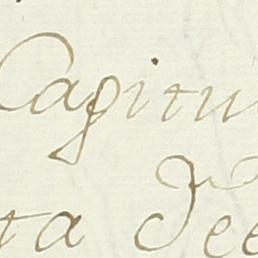 Capitu
ta dee